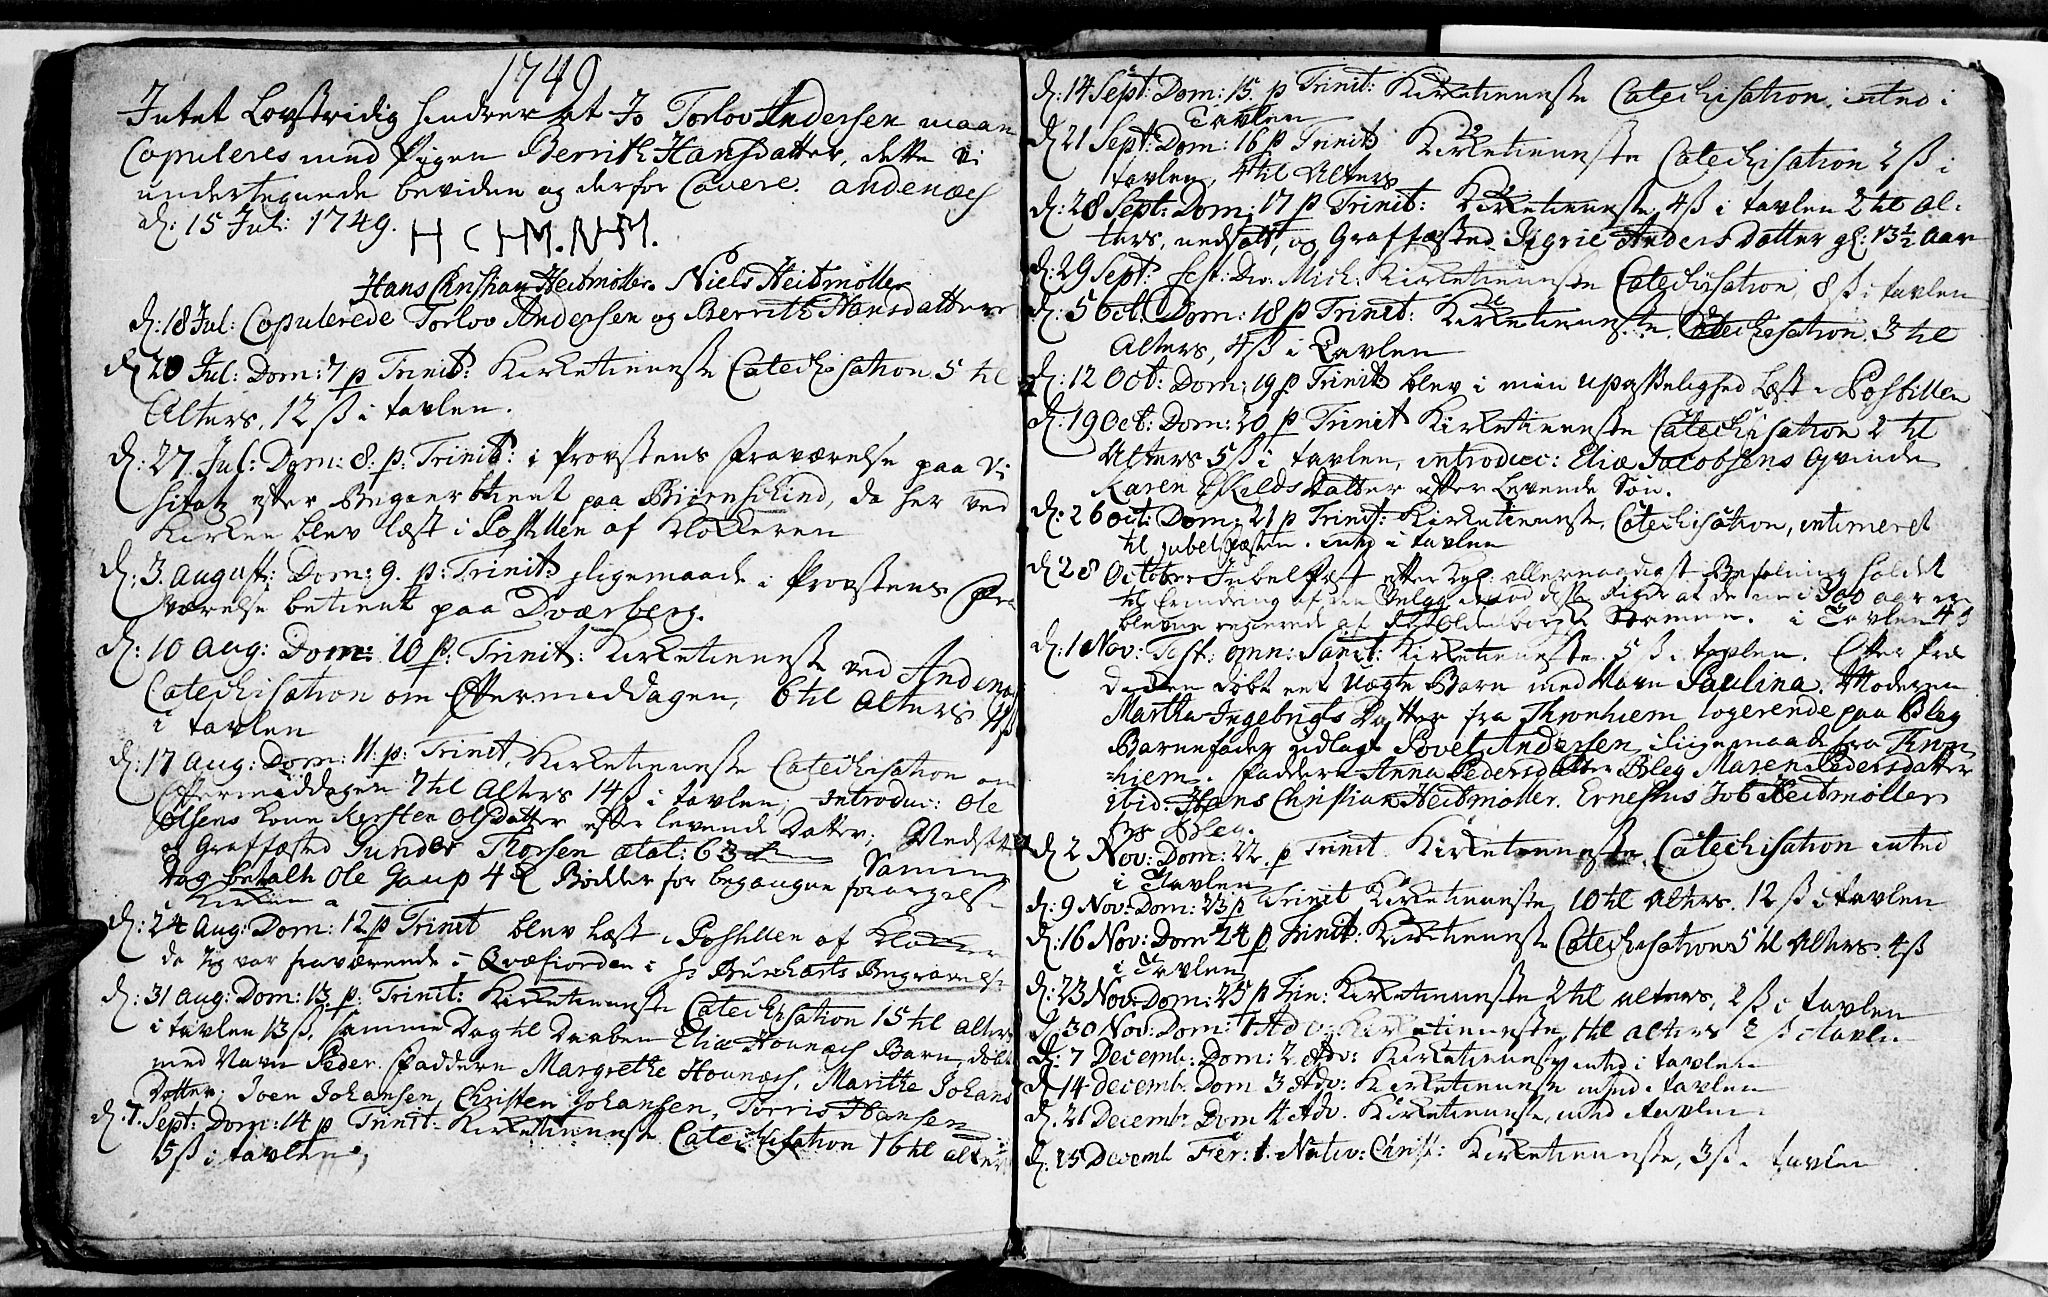 1749
Intet Lovstridig hindrer at Jo Torlov Andersen maae
Copuleres med Pigen Berrith Hansdatter, dette vi
undertegnede beviden og derfor Cavere. Andenæs
d: 15 Jul: 1749.
H C HM. N HM.
Hans Christian Heitmøller. Niels Heitmøller
d: 18 Jul: Copulerede Torlov Andersen og Berrith Hansdatter
d: 20 Jul: Dom: 7 p Trinit: Kirketieneste Catechisation 5 til
Alters, 12 ß i tavlen.
d: 27. Jul: Dom: 8. p: Trinit: i Provstens Fraværelse paa Vi
sitatz efter Begiær betient paa Biörnschind, da her ved
Kirken blev læst i Postillen af Klokkeren
d: 3. August: Dom: 9. p: Trinit: ligemaade i Provstens Fra
værelse betient paa Dværberg.
d: 10 Aug: Dom: 10 p: Trinit: Kirketieneste ved Andenæs
Catechisation om Eftermiddagen, 6 til Alters 4 ß
i tavlen
d: 17 Aug: Dom: 11. p: Trinit, Kirketieneste Catechisation om
Eftermiddagen 7 til Alters 14 ß i tavlen, Introduc: Ole
Olsens Kone Kersten Olsdatter efter levende Datter; Nedsatt
og Graffæsted Sunder Thorsen ætat: 63. Samme
Dag betalte Ole Gaup Bøder for begangne forargelse
i Kirken
d: 24 Aug: Dom: 12 p Trinit blev læst i Postillen af Klokker
da jeg var fraværende i Qvæfiorden i Hr Burcharts Begravelse
d: 31 Aug: Dom: 13 p: Trinit: Kirketieneste Catechisation 15 til Alters
i tavlen 13 ß, samme Dag til Daaben Eliæ Hounæss Barn, döbt
med Navn Peder. Faddere Margrethe Hounæss, Marithe Johans
Datter, Joen Johansen, Christen Johansen, Torris Hansen
d: 7. Sept: Dom: 14 p Trinit: Kirketieneste Catechisation 16 til Alters
15 ß i tavlen
d: 14 Sept: Dom: 15 p Trinit: Kirketieneste Catechisation. inted i
Tavlen
d 21 Sept: Dom: 16 p Trinit Kirketieneste Catechisation 2 ß i
tavlen, 4 til Alters
d: 28 Sept: Dom: 17 p Trinit: Kirketieneste 4 ß i tavlen 2 til Al-
ters, nedsatt, og Graffæsted Sigrie Anders Datter gl: 13½ Aar
d: 29 Sept: Fest: Div: Mich: Kirketieneste Catechisation, 8 ß i tavlen
d: 5 Oct: Dom: 18 p Trinit: Kirketieneste. Catechisation. 3 til
Alters, 4 ß i Tavlen
d: 12 Oct: Dom: 19 p Trinit: blev i min upasselighed Læst i Postillen
d: 19 Oct: Dom: 20 p Trinit Kirketieneste Catechisation 2 til
Alters 5 ß i tavlen, introduc: Eliæ Jacobsens Qvinde
Karen Eskilds Datter efter Levende Søn.
d: 26 Oct: Dom: 21 p Trinit: Kirketieneste, Catechisation, intimeret
til Jubel Fæsten. inted i tavlen
d 28 October Jubel Fest efter Kgl: allernaadigst Befalning holdet
til Erindring af at de nu i 300 aar er
blevne regierede af Oldenborgske Stamme. i Tavlen 4 ß
d: 1 Nov: Fest: omn: Sanct: Kirketieneste. 5 ß i tavlen. Efter Præ
deken döbt eet Uægte Barn med Navn Paulina. Moderen
Martha Ingebrigts Datter fra Thronhiem logerende paa Bleg
Barnefader udlagt Povel Andersen, iligemaade fra Thron
hiem. Faddere Anna Pedersdatter Bleg Maren Pedersdatter
ibid. Hans Christian Heitmøller. Ernestus Job Heitmøller
Bleg.
d 2 Nov: Dom: 22. p Trinit Kirketieneste. Catechisation inted
i Tavlen
d: 9 Nov: Dom: 23 p Trinit Kirketieneste 10 til Alters. 12 ß i tavlen
d: 16 Nov: Dom 24 p Trinit: Kirketieneste Catechisation 5 til Alters. 4 ß
i Tavlen
d: 23 Nov: Dom: 25 p Trin: Kirketieneste 2 til Alters, 2 ß i tavlen
d: 30 Nov: Dom: 1 Adv: Kirketieneste, 1 til Alters 2 ß i tavlen
d: 7 Decemb: Dom: 2. Adv: Kirketieneste inted i tavlen
d 14 Decemb: Dom 3 Adv: Kirketieneste inted i tavlen
d. 21 Decemb: Dom 4 Adv. Kirketieneste, inted i tavlen
d. 25 Decemb Fer: 1. Nativ: Christ: Kirketieneste, 3 ß i tavlen